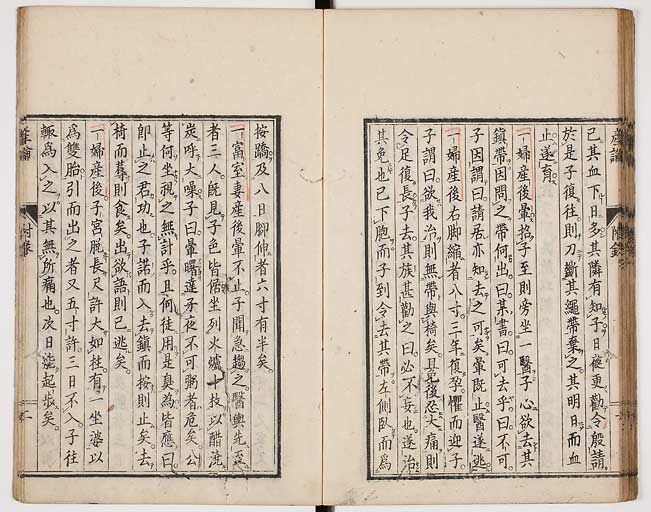 己其血下日多其隣有知子曰樸更勸令殷請
於是子復往則刀斷其繩帶棄之其明日而血
止遂育
一婦産後暈招子至則旁坐一醫子心欲去其
鎭帶因問之帶何出曰某書曰可去乎曰不可
子因謂曰請居亦知去之可矣暈既止醫遂逃
一婦産後右脚縮者八寸三年復孕懼而迎子
子謂曰欲我治則無帶與椅矣且免後忍大痛則
令足復長子去其族甚勸之曰必不妄也遂治
其免也已下胞而子到令去其帶左側臥而爲
産論
附錄
按蹻及八日脚伸者六寸有半矣
一富室妻産後暈不止子聞急趨之醫輿先至
者三人既見子色皆倨坐列火爐十枝以醋澆
炭呼大噪子曰暈曙達子夜不可弼者危矣公
等何坐視之無計乎且何徒用是臭爲皆應曰
卽止之君功也子諾而入去鎭而按則止矣去
椅而暮則食矣出欲語則已逃矣
一婦産後子宮脫長尺許大如柱有一坐婆以
爲雙胎引而出之者又五寸許三日不入子往
輒爲入之以其無所痛也次日能起步矣
産論
附錄
二